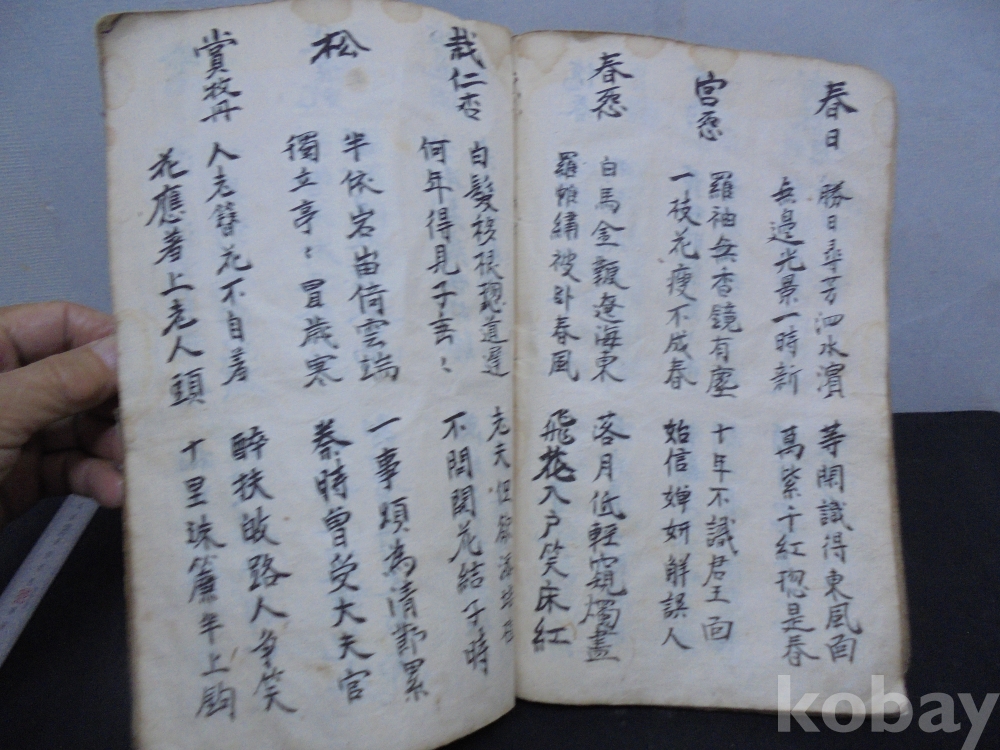 春日
勝日尋芳泗水濱
無邊光景一時新
等閑識得東風面
萬紫千紅揔是春
宮怨
羅袖無香鏡有塵
一枝花瘦不成春
十年不識君王面
始信嬋妍解誤人
春怨
白馬金鞍遼海東
羅帷繡被臥春風
落月低輕窺燭盡
飛花入戶笑床紅
栽仁杏
白髮移根恐道遲
何年得見子
老夫但欲添培
不問開花結子時
松
半依岩岫倚雲端
獨立亭〻冒歲寒
一事頗為清節累
秦時曾受大夫官
賞牡丹
人老簪花不自羞
花應羞上老人頭
醉扶皈路人爭笑
十里珠簾半上鉤
kobay